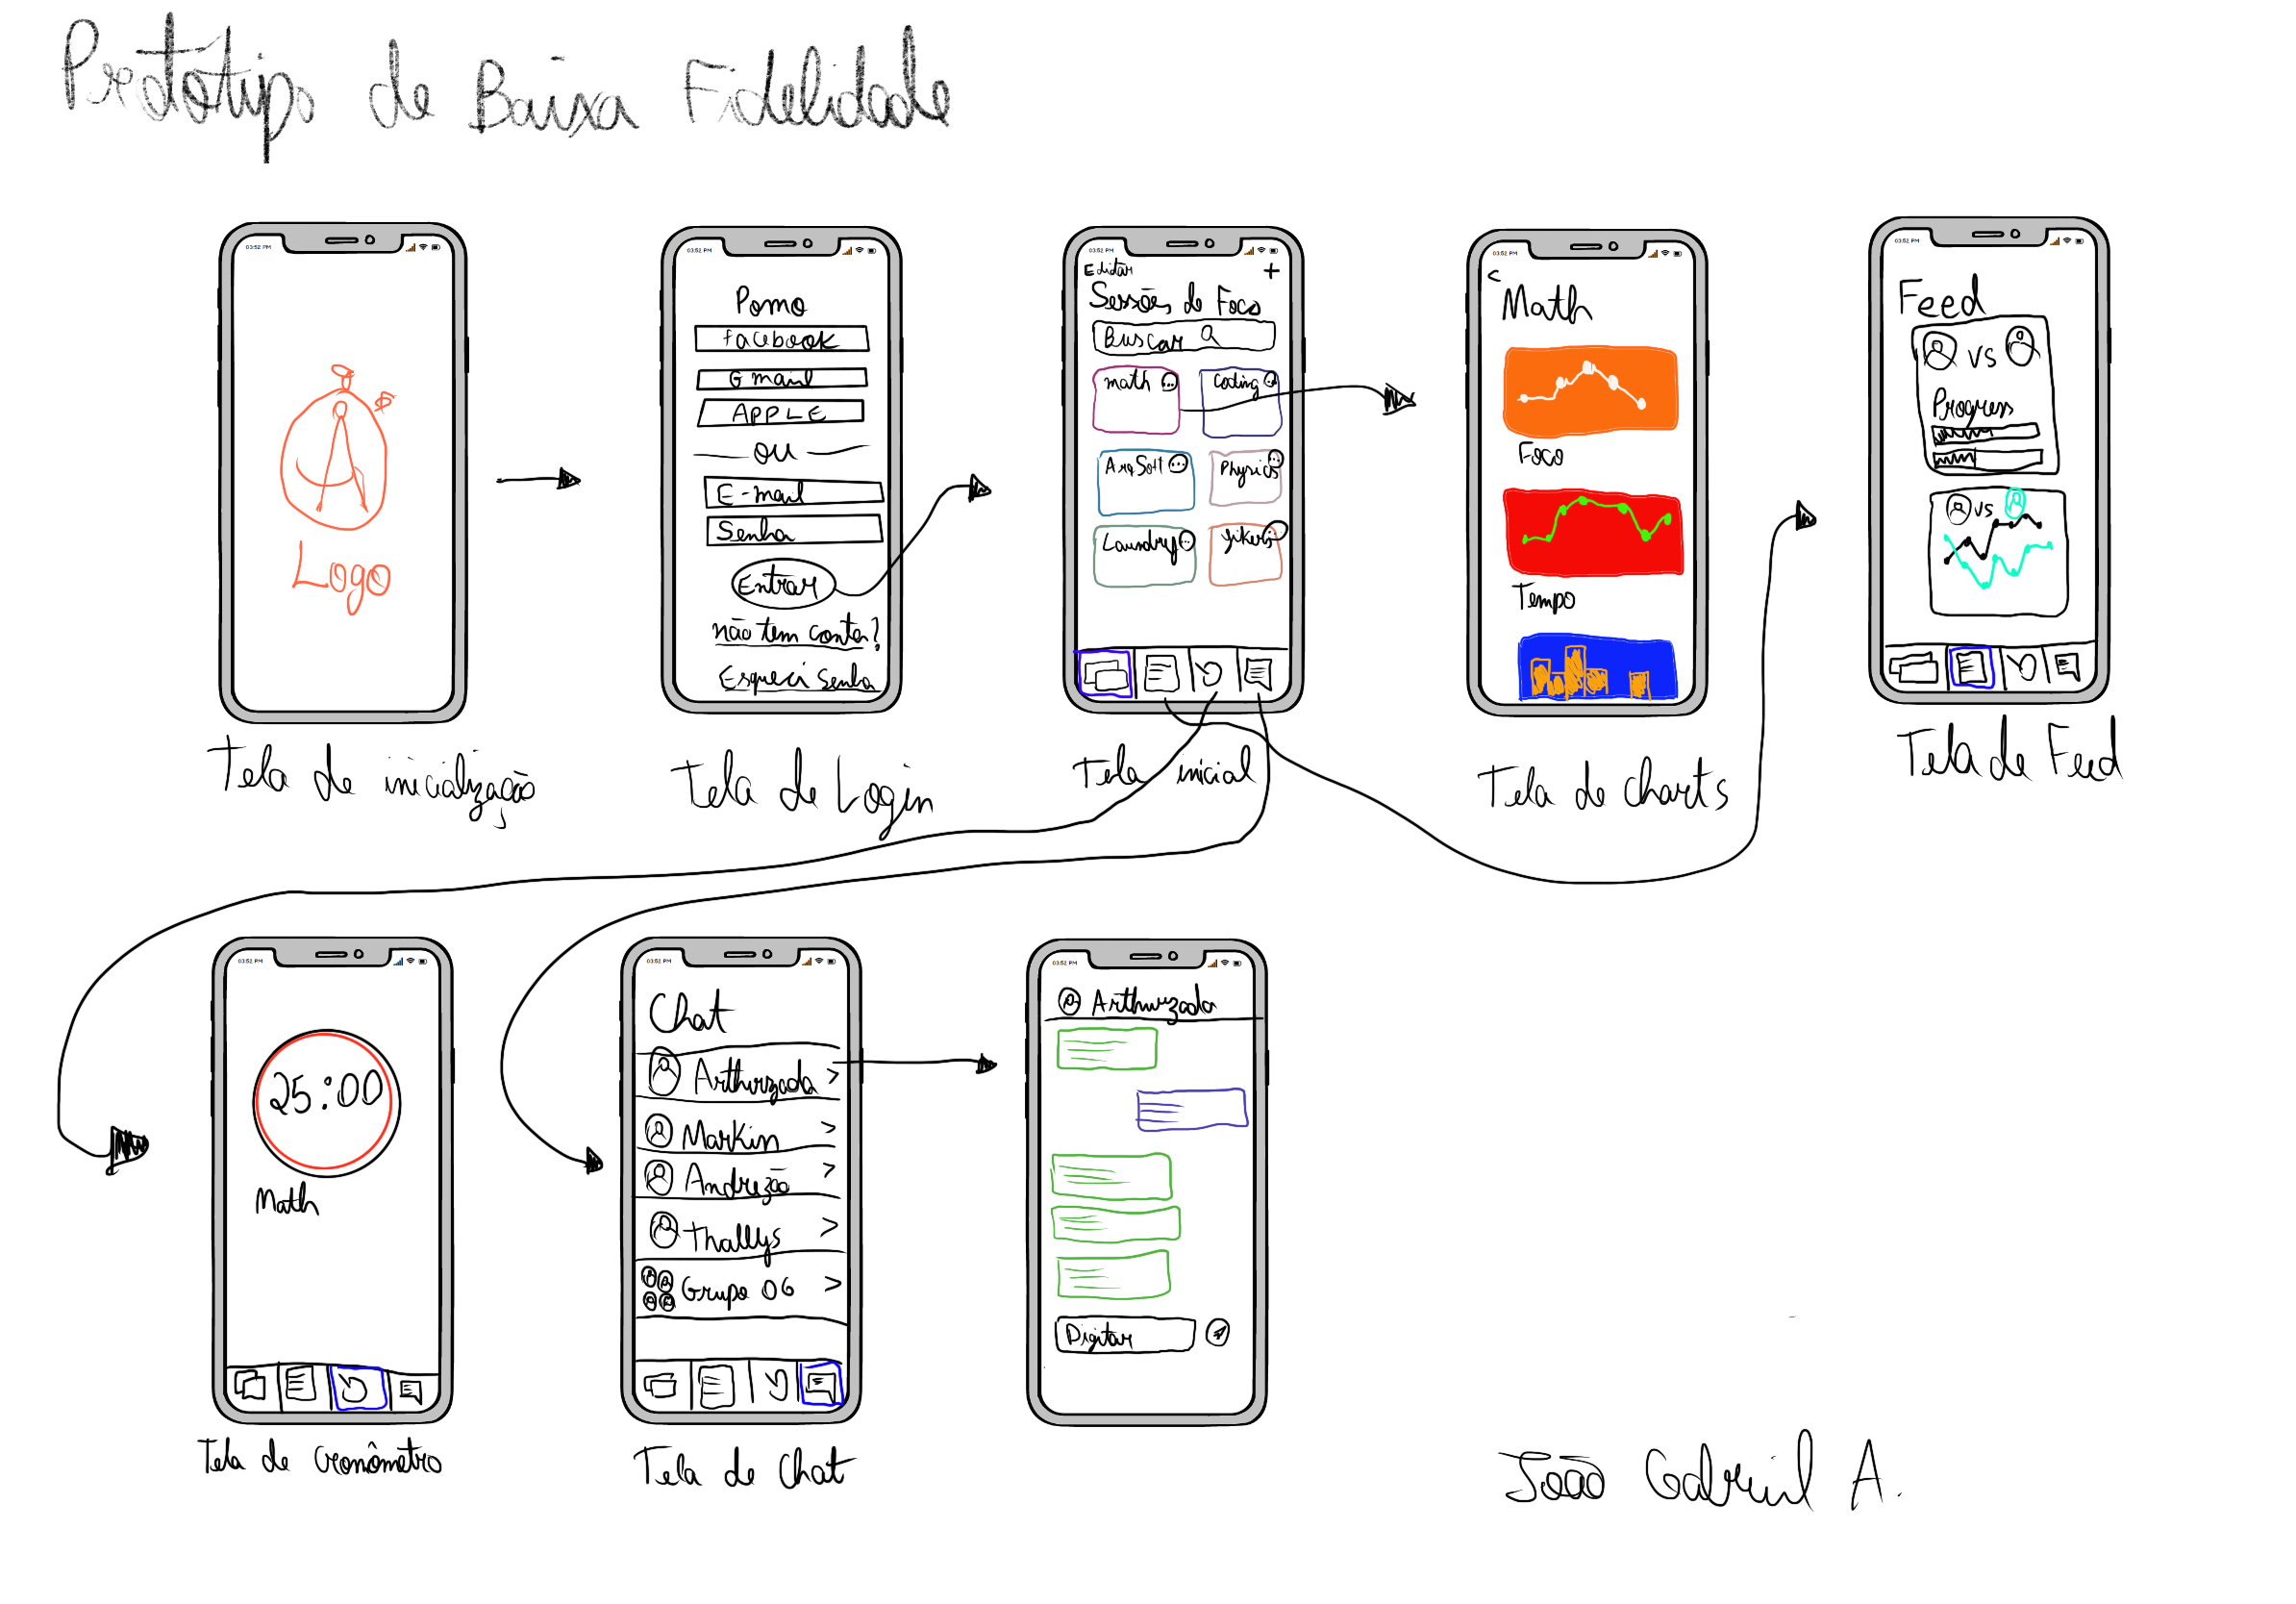 Prototipo de Baixa Fidelidade
03:52 PM
Logo
Tela de inicialização
03:52 PM
Pomo
facebook
Gmail
APPLE
OU
E-mail
Senha
Entrar
não tem conta?
Esqueci Senha
Tela de Login
03:52 PM
Editar +
Sessões de Foco
Buscar
math
Coding
ArqSoft
Physics
Laundry
Tela inicial
03:52 PM
<
Math
Foco
Tempo
Tela de charts
03:52 PM
Feed
VS
Progress
VS
Tela de Feed
03:52 PM
25:00
Math
Tela de cronômetro
03:52 PM
Chat
Arthurzada >
Markin >
Andrezão >
Thallys >
Grupo 06 >
Tela de Chat
03:52 PM
Arthurzada
Digitar
João Gabriel A.